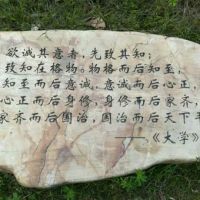 欲诚其意者，先致其知；
致知在格物。物格而后知至，
知至而后意诚，意诚而后心正，
心正而后身修，身修而后家齐，
家齐而后国治，国治而后天下平
——《大学》